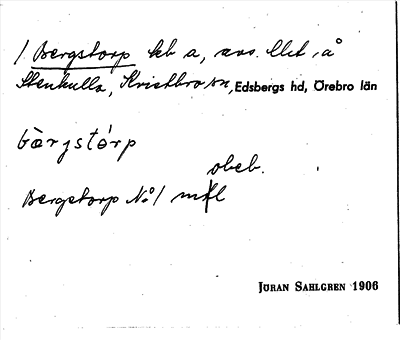 1 Bergstorp hb a, avs. llet, å
Stenkulla, Kvistbro sn, Edsbergs hd, Örebro län
bæ̀rjstórp
obeb.
Bergstorp No 1 mtl
JÖRAN SAHLGREN 1906